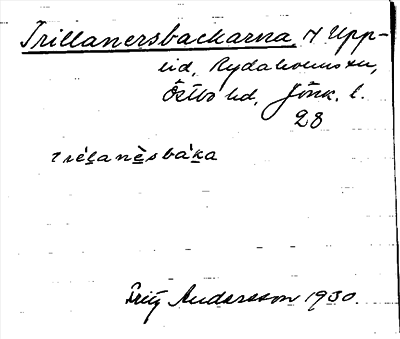 Trillanersbackarna, H Upp-
lid, Rydaholms sn,
Östbo hd, Jönk. l.
28
tréḷanèsbáka
Fritz Andersson 1930.